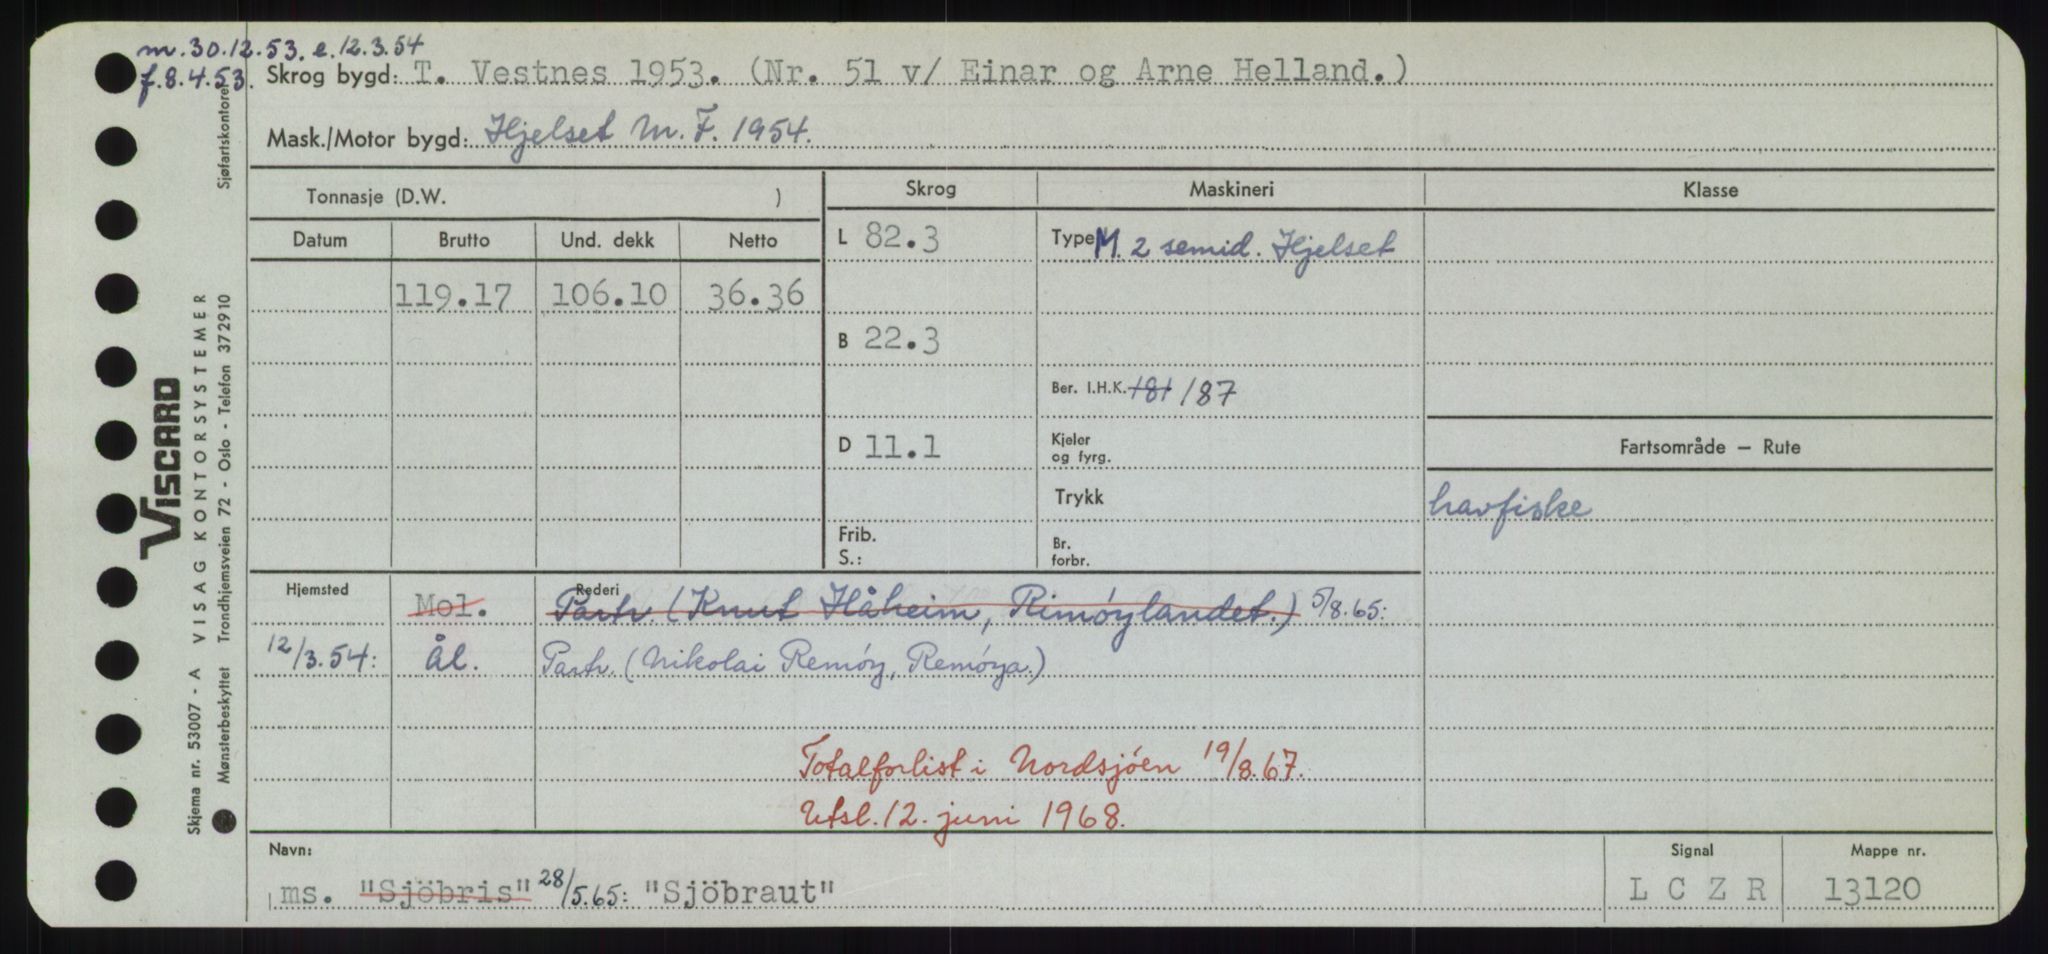 m. 30.12.53. e. 12.3.54
f. 8.4.53. Skrog bygd: T. Vestnes 1953. (Nr. 51 v/ Einar og Arne Helland.)
Mask./Motor bygd: Hjelset M.F. 1954.
Tonnasje (D.W. ) Skrog Maskineri Klasse
Datum Brutto Und. dekk Netto L 82.3 Type M. 2 semid. Hjelset
119.17 106.10 36.36
B 22.3
Ber. I.H.K. 181 187
D 11.1 Kjeler og fyrg. Fartsområde — Rute
Trykk havfiske
Frib. S.: Br. forbr.
Hjemsted Rederi
Mol. Partr. (Knut Håheim, Rimøylandet.) 5/8.65:
12/3.54: Ål. Partr. (Nikolai Remøy, Remøya.)
Totalforlist i Nordsjøen 19/8.67.
Utsl. 12. juni 1968.
Navn: Signal Mappe nr.
ms. "Sjöbris" 28/5.65: "Sjöbraut" L C Z R 13120
Sjøfartskontoret
VISCARD
VISAG KONTORSYSTEMER
Skjema nr. 53007 - A
Mønsterbeskyttet Trondhjemsveien 72 - Oslo - Telefon 372910